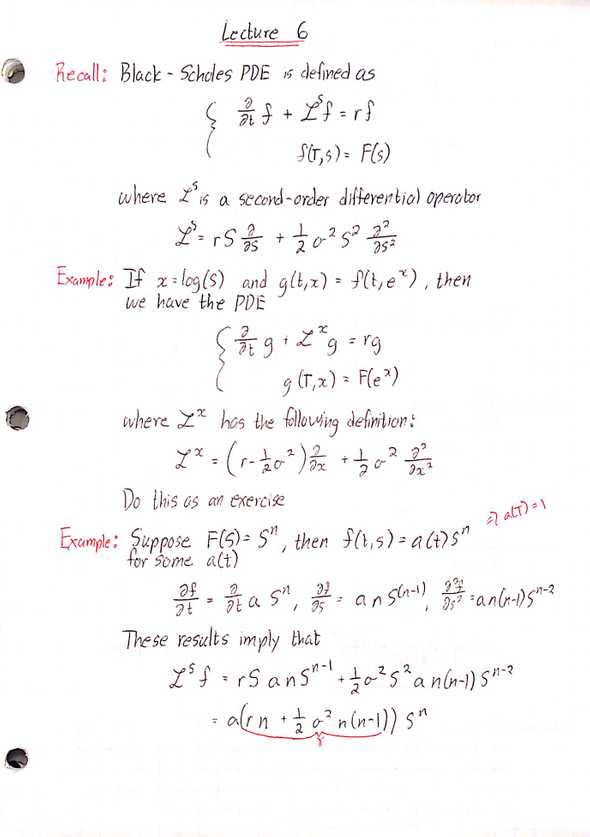 Lecture 6
Recall: Black-Scholes PDE is defined as
{ ∂/∂t f + ℒ^S f = rf
f(T,s) = F(s)
where ℒ^S is a second-order differential operator
ℒ^S = rS ∂/∂S + 1/2 σ² S² ∂²/∂S²
Example: If x = log(S) and g(t,x) = f(t,e^x), then
we have the PDE
{ ∂/∂t g + ℒ^x g = rg
g(T,x) = F(e^x)
where ℒ^x has the following definition:
ℒ^x = (r - 1/2 σ²) ∂/∂x + 1/2 σ² ∂²/∂x²
Do this as an exercise
Example: Suppose F(S) = S^n, then f(t,s) = a(t) S^n ⇒ a(T) = 1
for some a(t)
∂f/∂t = ∂/∂t a S^n, ∂f/∂S = a n S^(n-1), ∂²f/∂S² = an(n-1)S^(n-2)
These results imply that
ℒ^S f = rS a n S^(n-1) + 1/2 σ² S² a n(n-1) S^(n-2)
= a(rn + 1/2 σ² n(n-1)) S^n
γ